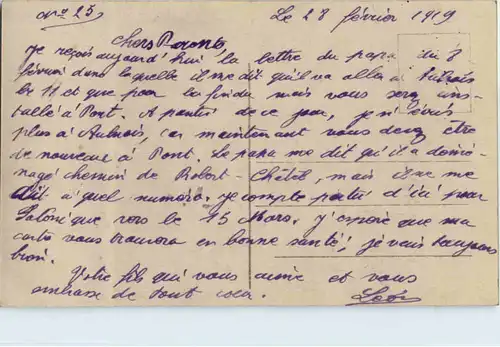 N° 25 Le 28 février 1919
Chers Parents
Je reçois aujourd'hui la lettre du papa du 8
février dans laquelle il me dit qu'il va aller à
le 11 et que pour la fin du mois vous serez ins-
tallé à Pont. A partir de ce jour, je n'écris
plus à Aulnois, car maintenant vous devez être
de nouveau à Pont. Le papa me dit qu'il a démé-
nagé chemin de Robert-Châtel, mais il ne me
dit à quel numéro. Je compte partir d'ici pour
Salonique vers le 15 Mars. J'espère que ma
carte vous trouvera en bonne santé; je vais toujours
bien.
Votre fils qui vous aime et vous
embrasse de tout cœur.